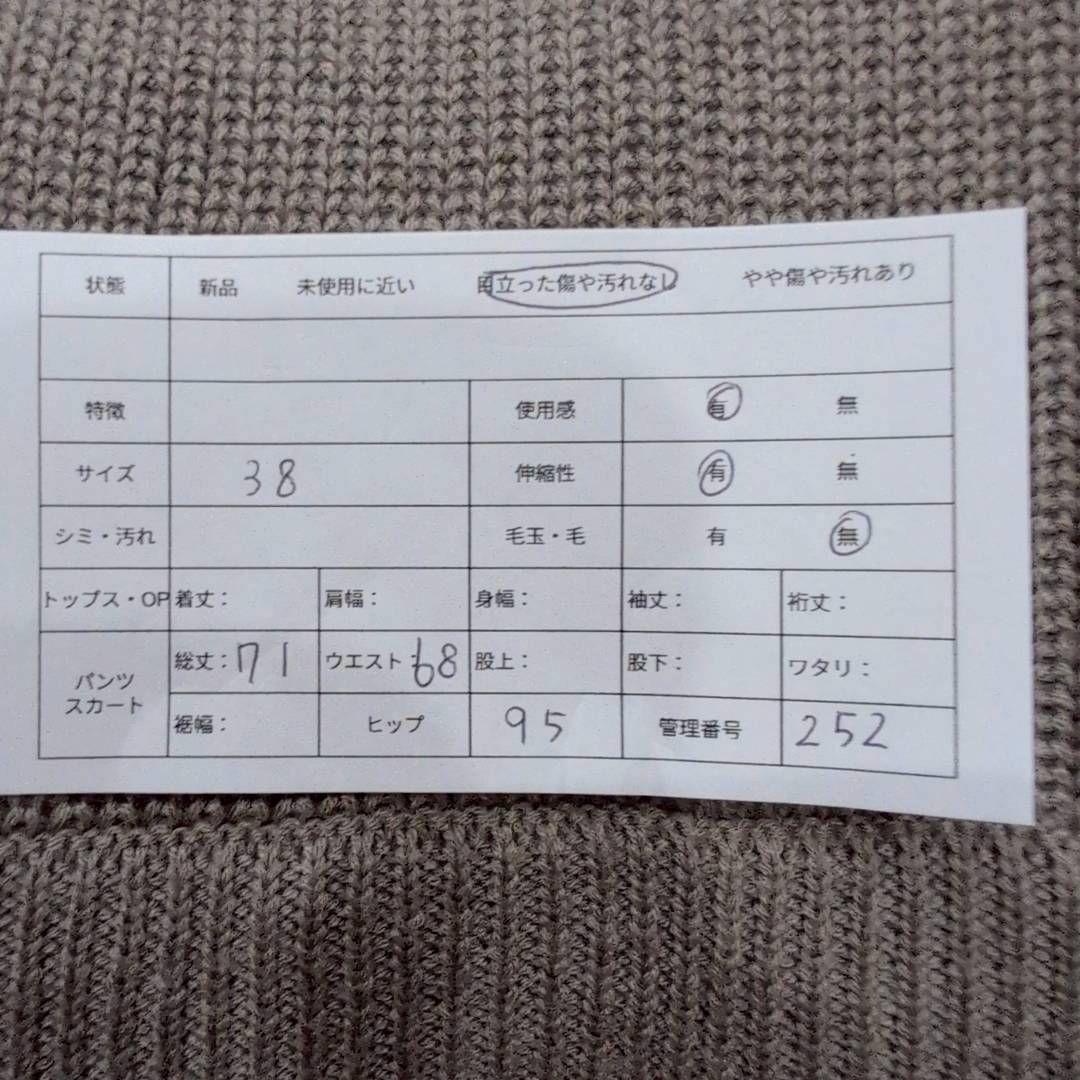 状態 新品 未使用に近い 目立った傷や汚れなし やや傷や汚れあり
特徴 使用感 有 無
サイズ 38 伸縮性 有 無
シミ・汚れ 毛玉・毛 有 無
トップス・OP 着丈: 肩幅: 身幅: 袖丈: 裄丈:
パンツ スカート 総丈:71 ウエスト:68 股上: 股下: ワタリ:
裾幅: ヒップ 95 管理番号 252